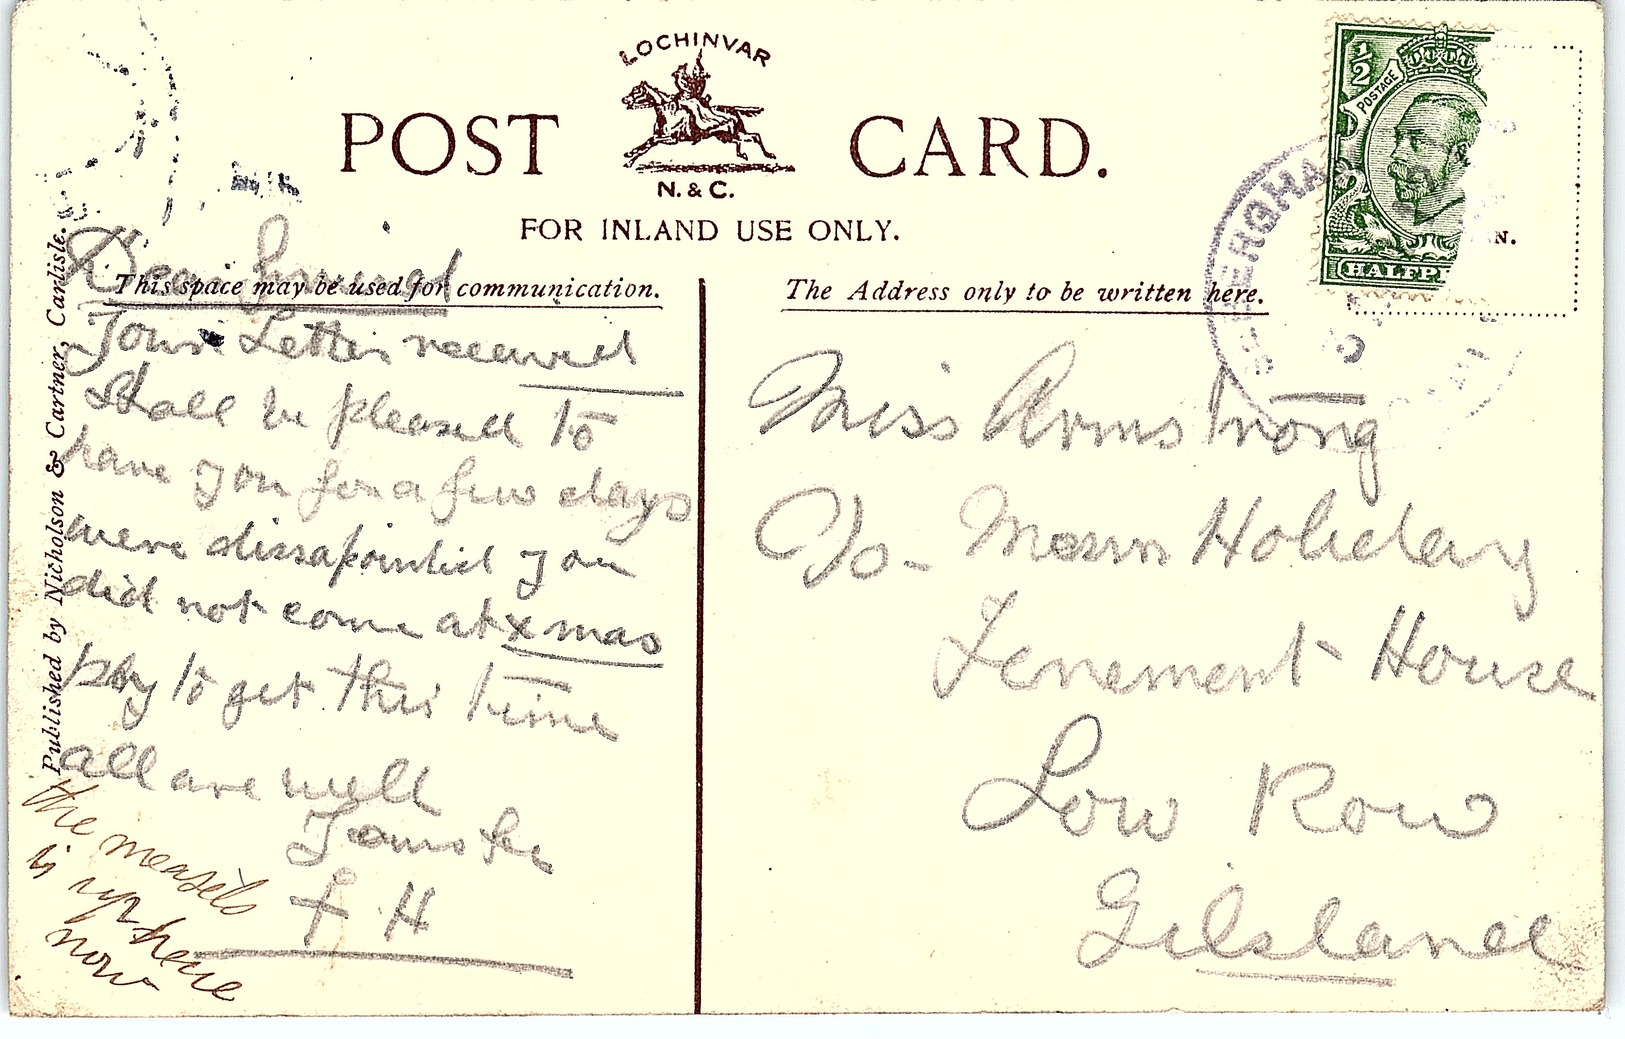 LOCHINVAR
POST CARD.
N. & C.
FOR INLAND USE ONLY.
This space may be used for communication.
The Address only to be written here.
Published by Nicholson & Cartner, Carlisle.
1/2
POSTAGE
HALFPE
N.
Dear
Your Letter received
Shall be pleased to
have you for a few days
were dissapointed you
did not come at xmas
try to get this time
all are well
Yours
F H
the measels
is up here
now
Miss Armstrong
C/o- Holiday
Tenement House
Low Row
Gilsland